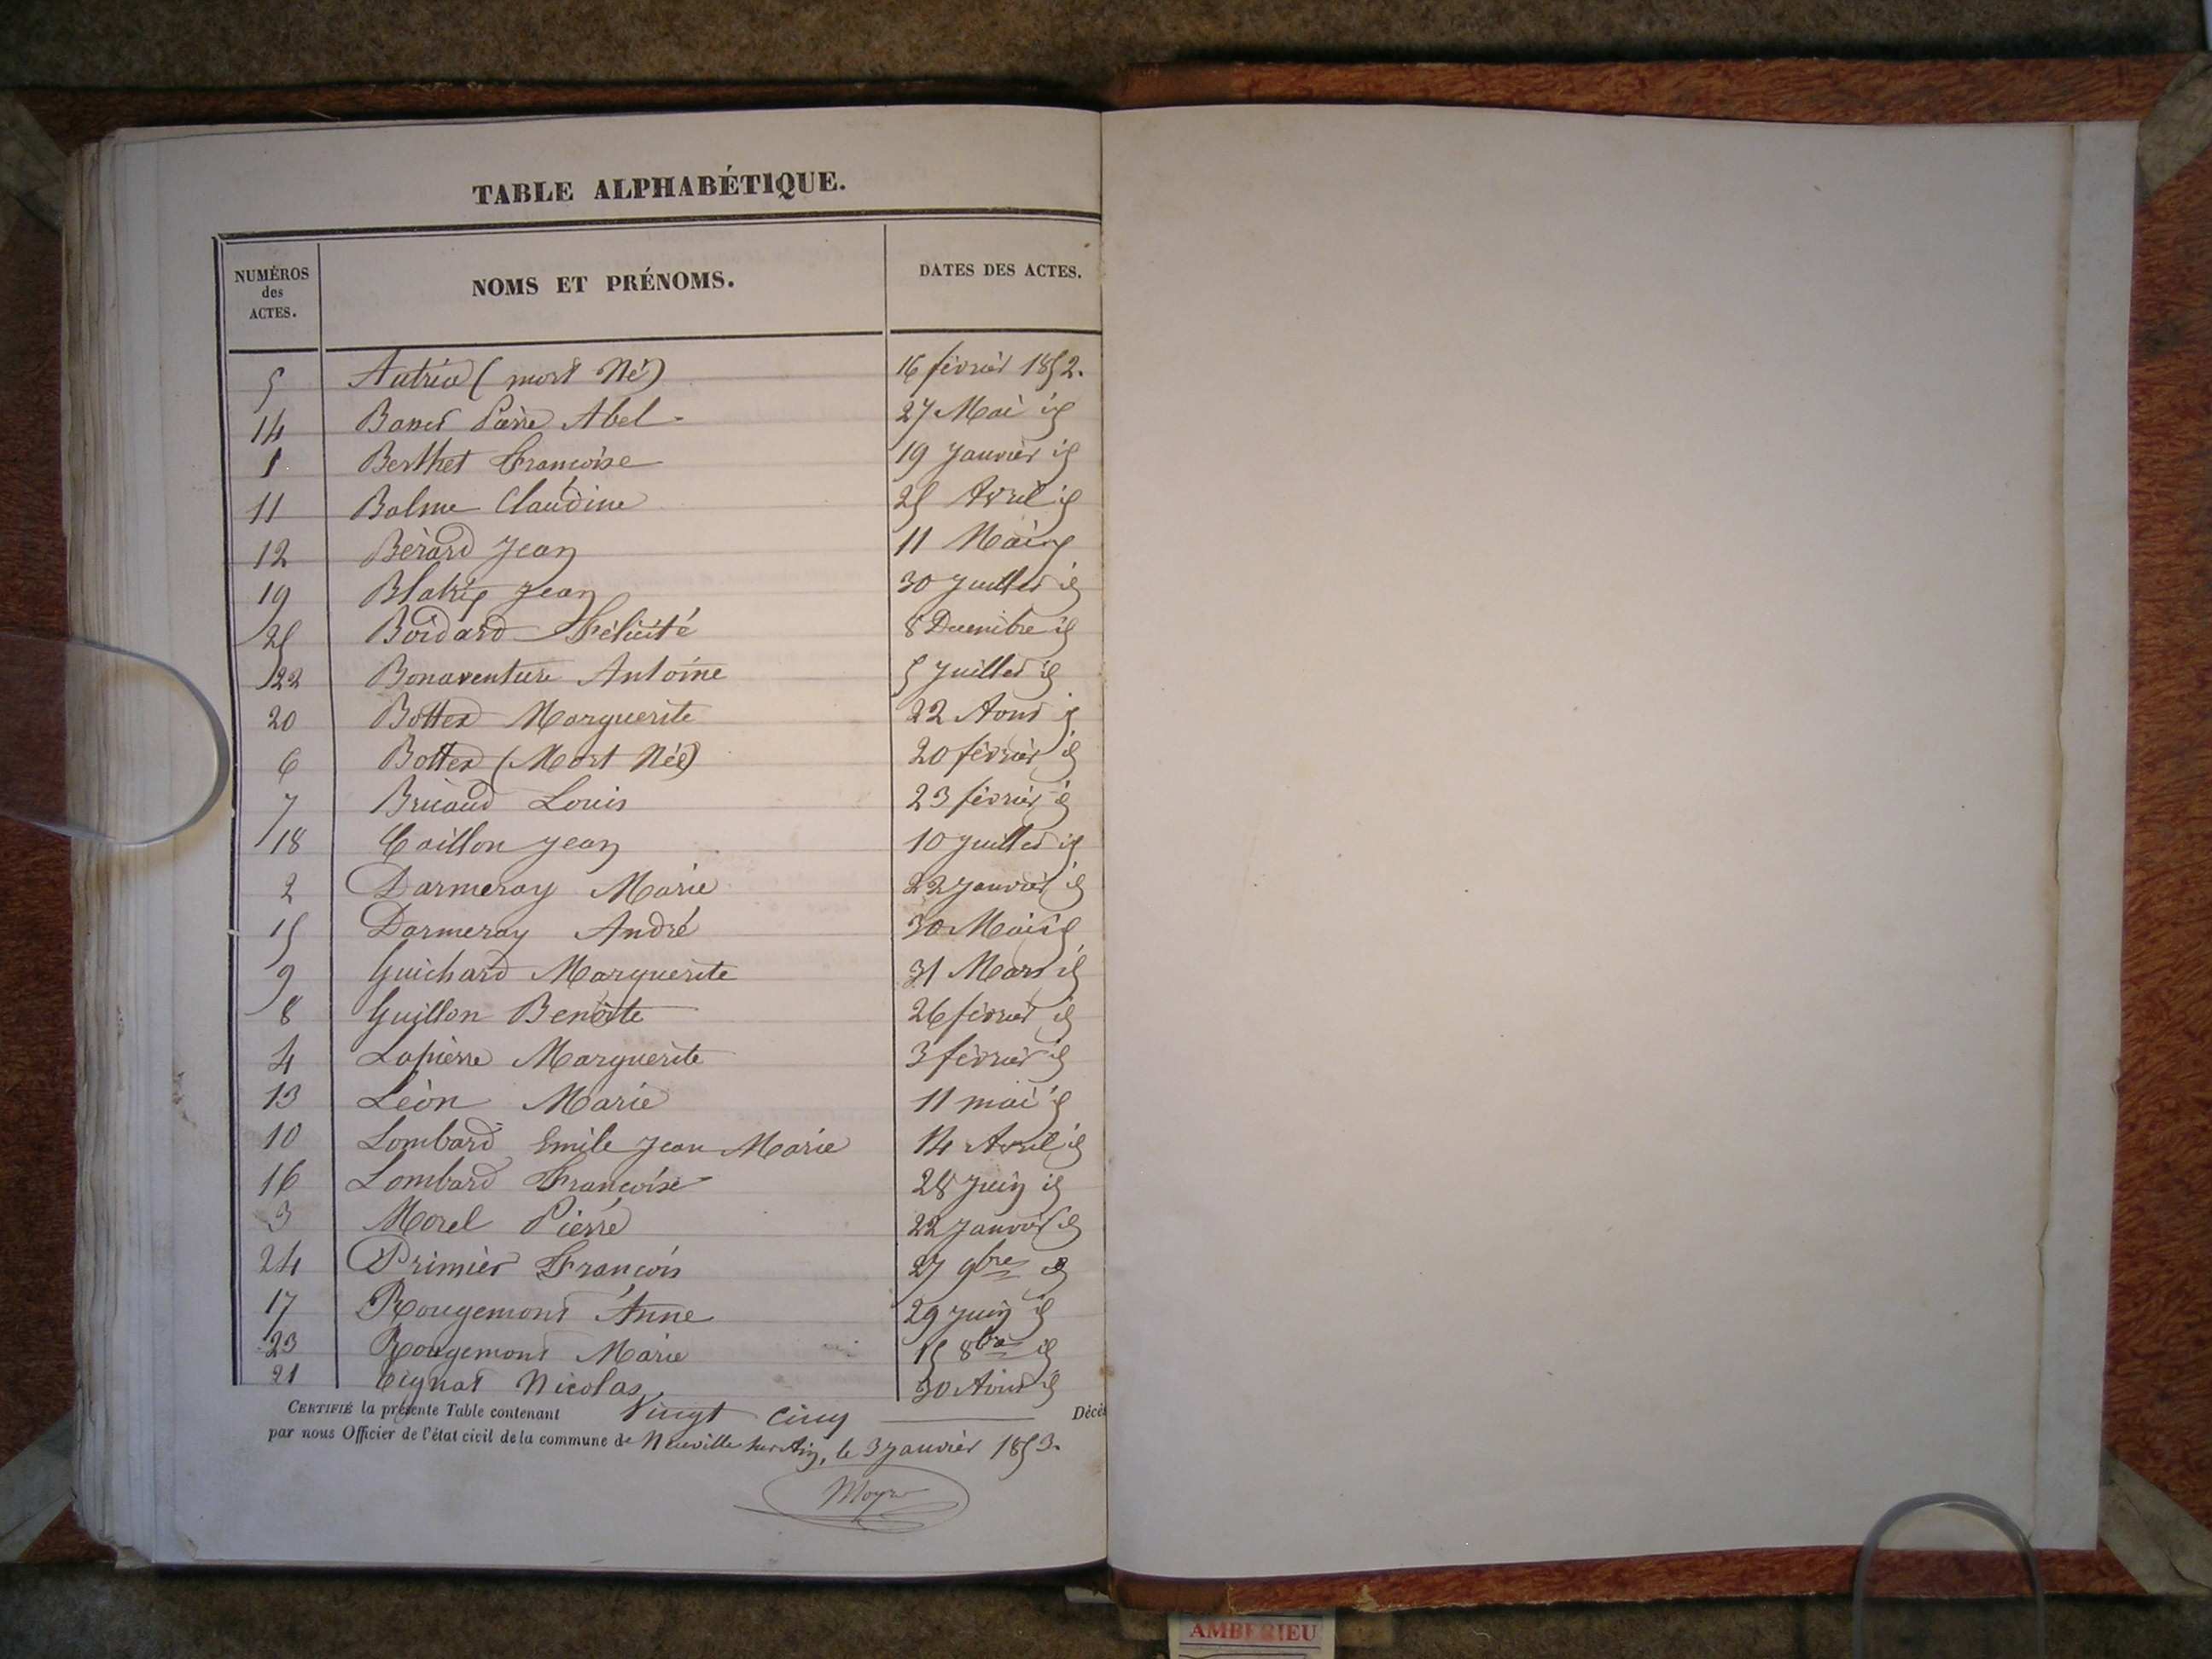 TABLE ALPHABÉTIQUE.
NUMÉROS des ACTES. NOMS ET PRÉNOMS. DATES DES ACTES.
5 (mort Né) 16 février 1852.
14 Pierre Abel 27 Mai id
1 Berthet Françoise 19 Janvier id
11 Balme Claudine 25 Avril id
12 Bérard Jean 11 Mai id
19 Jean 30 Juillet id
25 Boidard Félicité 8 Decembre id
22 Bonaventure Antoine 5 Juillet id
20 Bottex Marguerite 22 Aout id
6 Bottex (Mort Née) 20 février id
7 Bricaud Louis 23 février id
18 Caillon Jean 10 Juillet id
2 Darmeray Marie 22 Janvier id
15 Darmeray André 30 Mai id
9 Guichard Marguerite 31 Mars id
8 Guillon Benoite 26 février id
4 Lapierre Marguerite 3 février id
13 Léon Marie 11 mai id
10 Lombard Emile Jean Marie 14 Avril id
16 Lombard Françoise 28 Juin id
3 Morel Pierre 22 Janvier id
24 Primier François 27 9bre id
17 Rougemont Anne 29 Juin id
23 Rougemont Marie 15 8bre id
21 Nicolas 30 Aout id
CERTIFIÉ la présente Table contenant Vingt cinq Décès
par nous Officier de l'état civil de la commune de Neuville sur Ain, le 3 Janvier 1853.
AMBERIEU